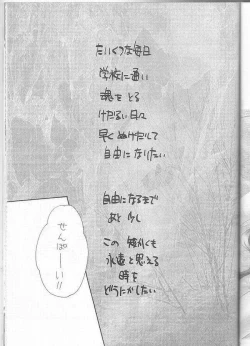 たいくつな毎日
学校に通い
魂をとる
けだるい日々
早くぬけだして
自由になりたい
自由になるまで
あと少し
この短かくも
永遠と思える
時を
どうにかしたい
せんぱーい!!